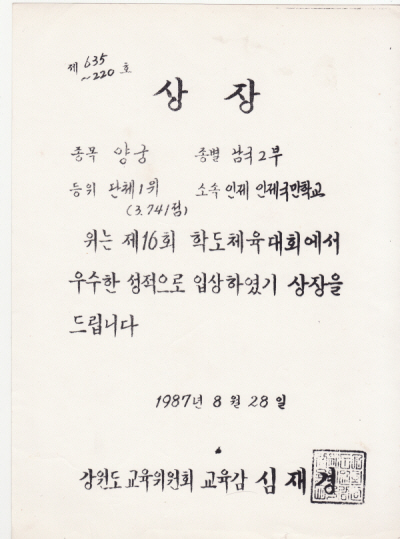 제 635 ~220 호
상 장
종목 양궁 종별 남국2부
등위 단체1위 소속 인제 인제국민학교
(3.741점)
위는 제16회 학도체육대회에서
우수한 성적으로 입상하였기 상장을
드립니다
1987년 8월 28일
강원도교육위원회 교육감 심재경